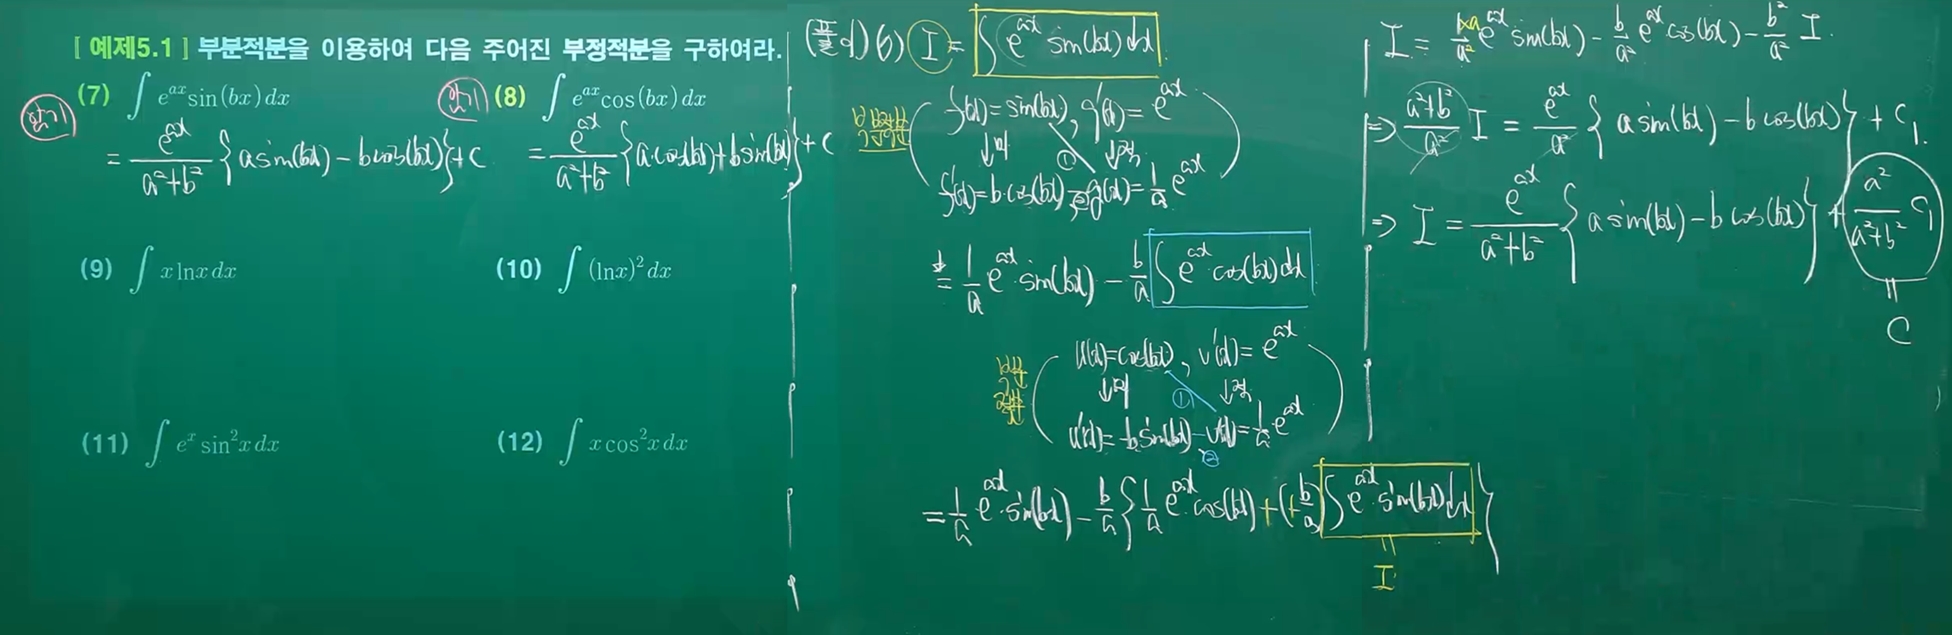 [ 예제5.1 ] 부분적분을 이용하여 다음 주어진 부정적분을 구하여라.
암기 (7) ∫ e^{ax} sin(bx) dx
= e^{ax}/(a²+b²) { a sin(bx) − b cos(bx) } + C
암기 (8) ∫ e^{ax} cos(bx) dx
= e^{ax}/(a²+b²) { a·cos(bx) + b sin(bx) } + C
(9) ∫ x lnx dx
(10) ∫ (lnx)² dx
(11) ∫ e^x sin²x dx
(12) ∫ x cos²x dx
I = ∫ e^{ax} sin(bx) dx
f(x) = sin(bx), g'(x) = e^{ax}
↓미 ① ↓적
f'(x) = b·cos(bx) g(x) = 1/a e^{ax}
= 1/a e^{ax}·sin(bx) − b/a ∫ e^{ax}·cos(bx) dx
u(x) = cos(bx), v'(x) = e^{ax}
↓미 ① ↓적
u'(x) = −b sin(bx) v(x) = 1/a e^{ax}
②
= 1/a e^{ax}·sin(bx) − b/a { 1/a e^{ax}·cos(bx) + (+b/a) ∫ e^{ax}·sin(bx) dx }
=
I
I = 1×a/a² e^{ax} sin(bx) − b/a² e^{ax} cos(bx) − b²/a² I.
⇒ (a²+b²)/a² I = e^{ax}/a² { a sin(bx) − b cos(bx) } + C₁.
⇒ I = e^{ax}/(a²+b²) { a sin(bx) − b cos(bx) } + a²/(a²+b²) C₁
=
C